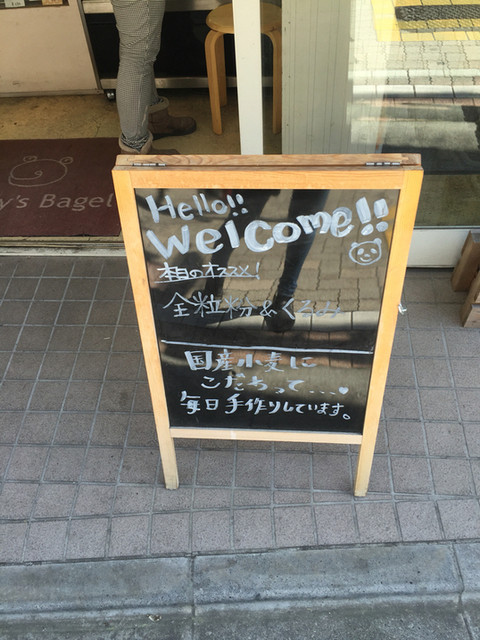 Hello!!
Welcome!!
本日のオススメ!
全粒粉&くるみ
国産小麦に
こだわって....♥
毎日手作りしています。
y's Bagel